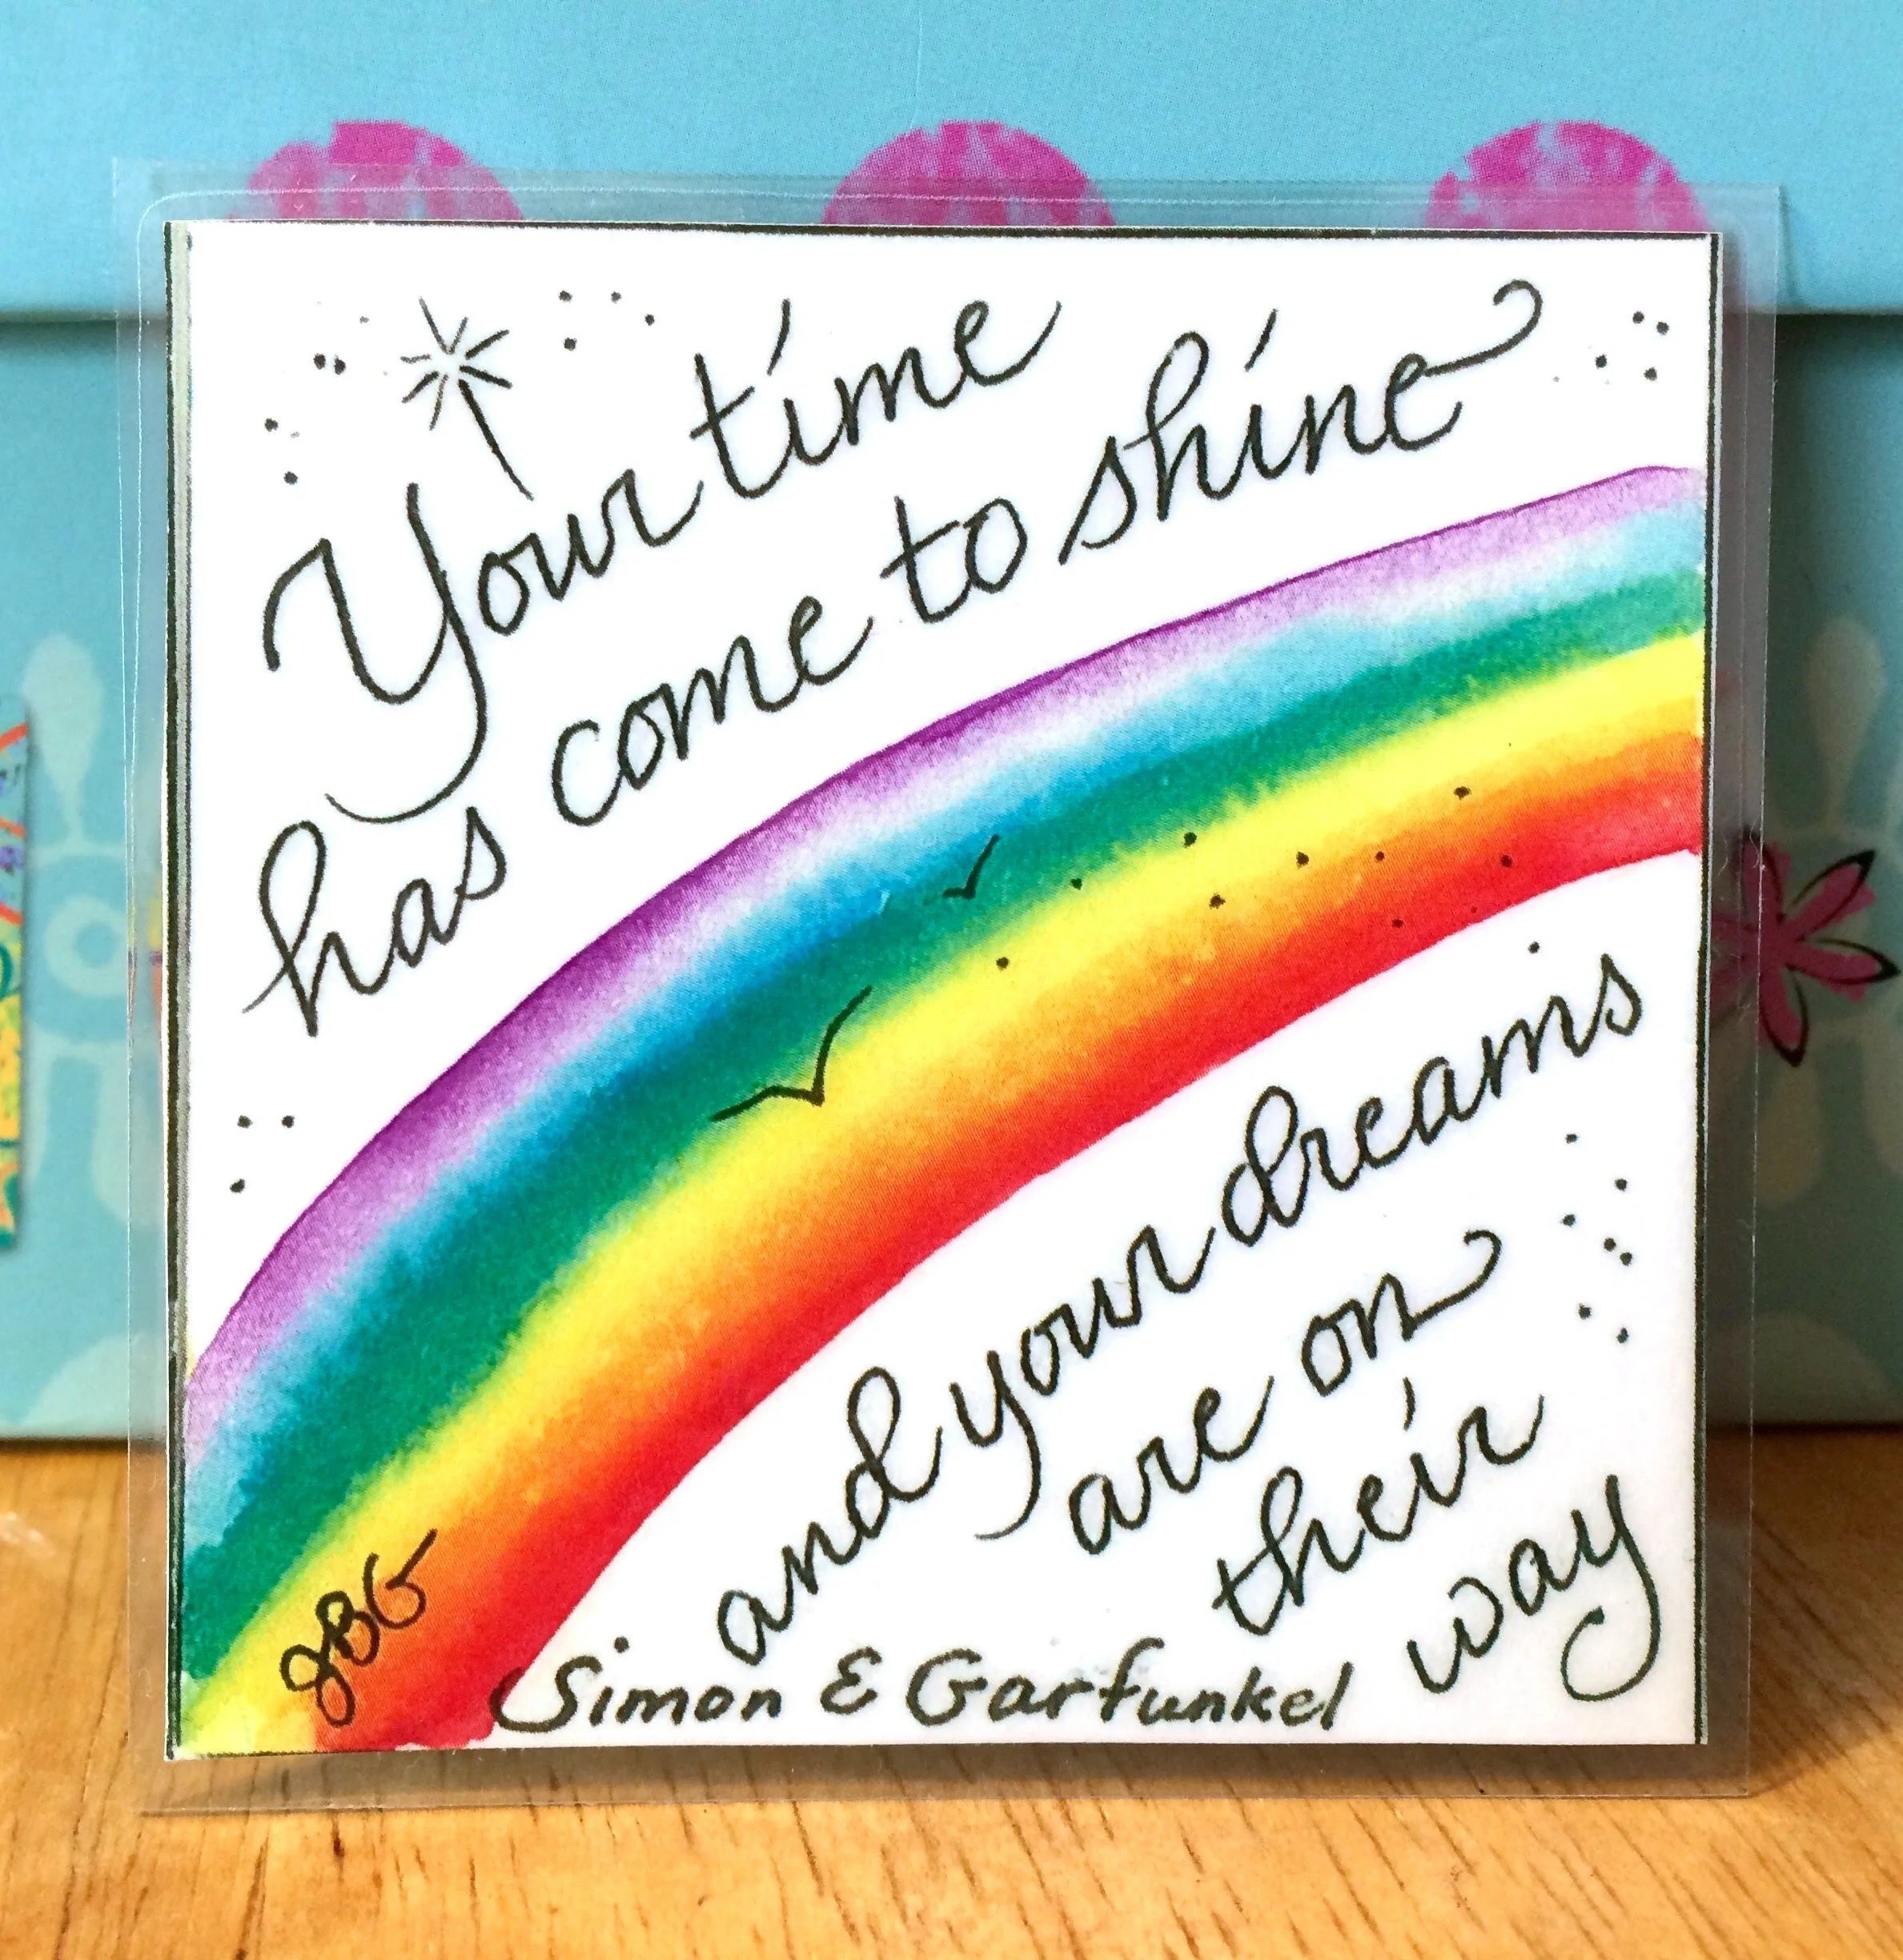 Your time
has come to shine
and your dreams
are on
their
way
JBG
Simon & Garfunkel